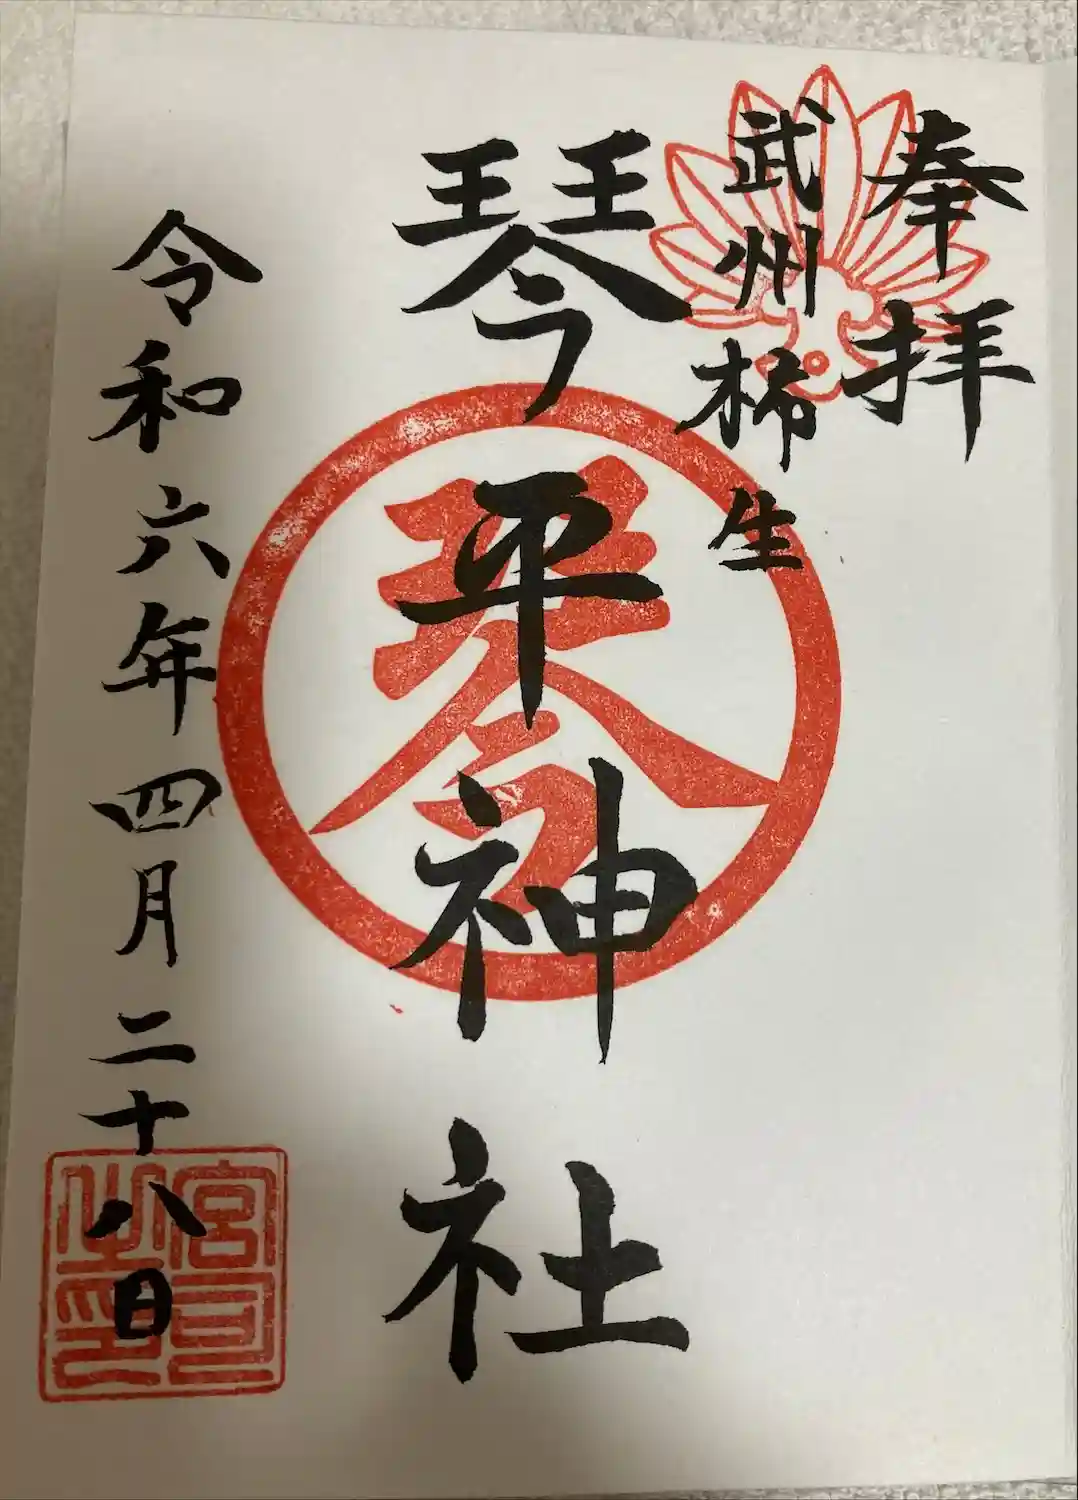 奉拝
武州柿生
琴平神社
令和六年四月二十八日
琴
宮司之印